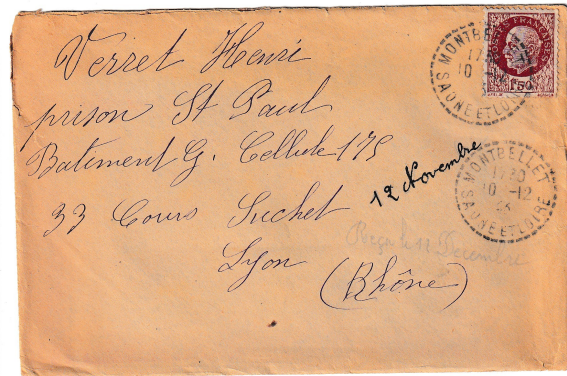 Verret Henri
prison St Paul
Batiment G. Cellule 175
33 Cours Suchet
Lyon
(Rhône)
12 Novembre
Reçu le 12 Decembre
POSTES FRANÇAISES
1F50
MONTBELLET
17
10
SAONE ET LOIRE
MONTBELLET
1730
10 -12
SAONE ET LOIRE